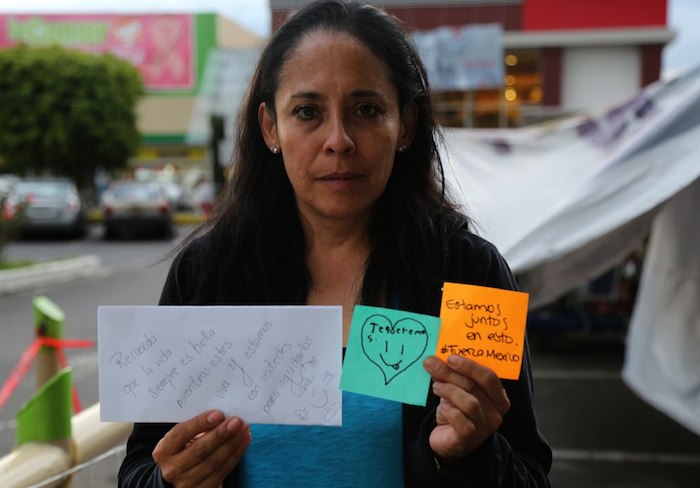 Recuerda
que la vida
siempre es bella
mientras estes
viva y estamos
con ustedes
para ayudarlos
Te queremos
Estamos
juntos
en esto.
#FuerzaMexico